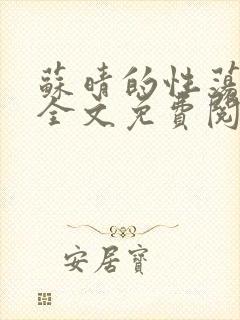 蘇晴的性蕩
全文免費閱
安居寶